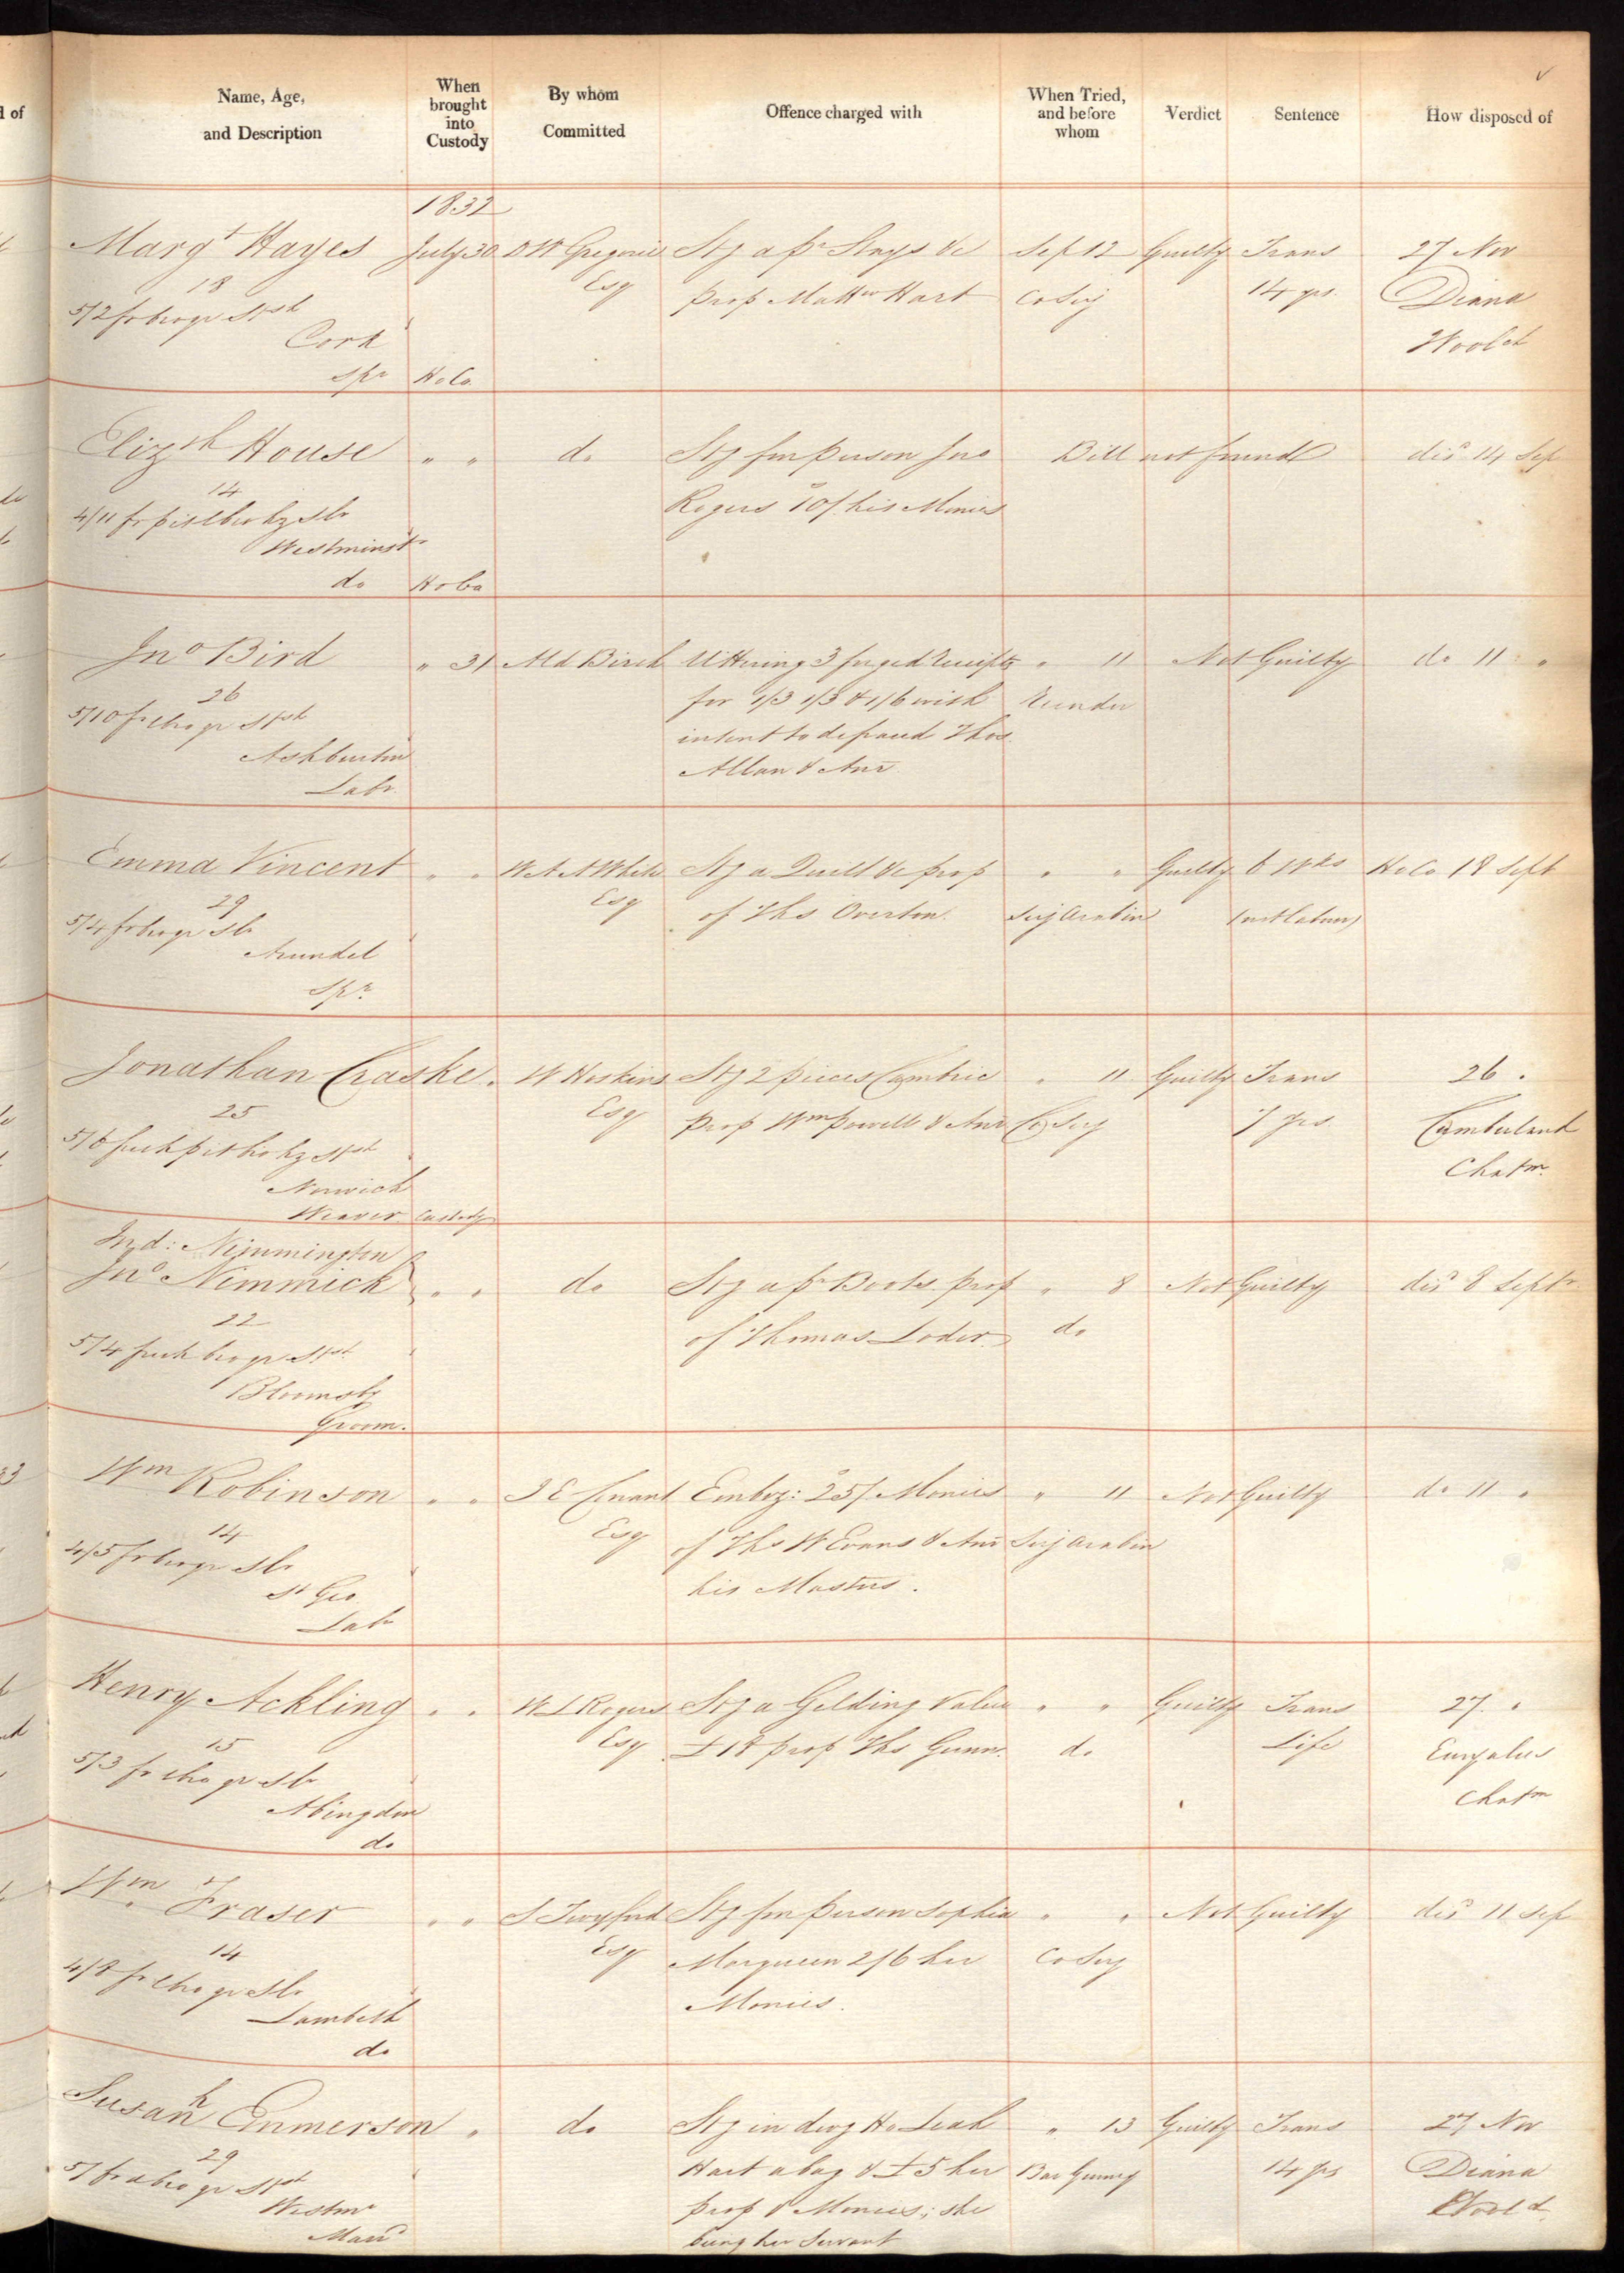 d of
Name, Age,
and Description
When
brought
into
Custody
By whom
Committed
Offence charged with
When Tried,
and before
whom
Verdict
Sentence
How disposed of
1832
Margt Hayes July 30 D W Gregorie Stg a pr Stays &c Sep 12 Guilty Trans 27 Nov
18 Esq prop Mattw Hart Co Serj 14 yrs Diana
5/2 fr bro gr Stst
Cork Woolch
Spr HoCo
Elizth House " " do Stg fm person Jno Bill not found dis 14 Sep
14 Rogers 10/ his Monies
4/11 fr pit lbro hz Slr
Westminstr
do HoCo
Jno Bird " 31 Ald Birch Uttering 3 forged Receipts " 11 Not Guilty do 11 "
26 for 1/3 1/3 & 1/6 with Recorder
5/10 fr cho gr Stst intent to defraud Thos
Ashburton Allan & Anr
Labr
Emma Vincent " " W A A White Stg a Quilt &c prop " " Guilty 6 Wks HoCo 18 Sept
29 Esq of Ths Overton Serj Arabin (not labour)
5/4 fr bro gr Slr
Arundel
Spr
Jonathan Craske " W Hoskins Stg 2 pieces Cambric " 11 Guilty Trans 26 "
25 Esq prop Wm Powell & Anr Co Serj 7 yrs Cumberland
5/6 freck pit bro hz Stst Chatm
Norwich
Weaver Custody
Ind: Nimmington
Jno Nimmick " " do Stg a pr Boots prop " 8 Not Guilty dis 8 Septr
22 of Thomas Loder do
5/4 freck bro gr Stst
Bloomsby
Groom.
Wm Robinson " " Embez: 25/ Monies " 11 Not Guilty do 11 "
14 Esq of Ths W Evans & Anr Serj Arabin
4/5 fr bro gr Slr his Masters.
St Geo
Labr
Henry Ackling " " W L Rogers Stg a Gelding Value " " Guilty Trans 27 "
15 Esq £18 prop Ths Gunn. do Life Euryalus
5/3 fr cho gr Slr Chatm
Abingdon
do
Wm Fraser " " S Twyford Stg fm person Sophia " " Not Guilty dis 11 Sep
14 Esq 2/6 her Co Serj
4/8 fr cho gr Slr Monies.
Lambeth
do
Susanh Emmerson " do Stg in dwg Ho Leah " 13 Guilty Trans 27 Nov
29 Hart a bag & £5 her Bar Gurney 14 yrs Diana
bro gr Stst prop & Monies; she Woolch
Westmr being her Servant
Marrd